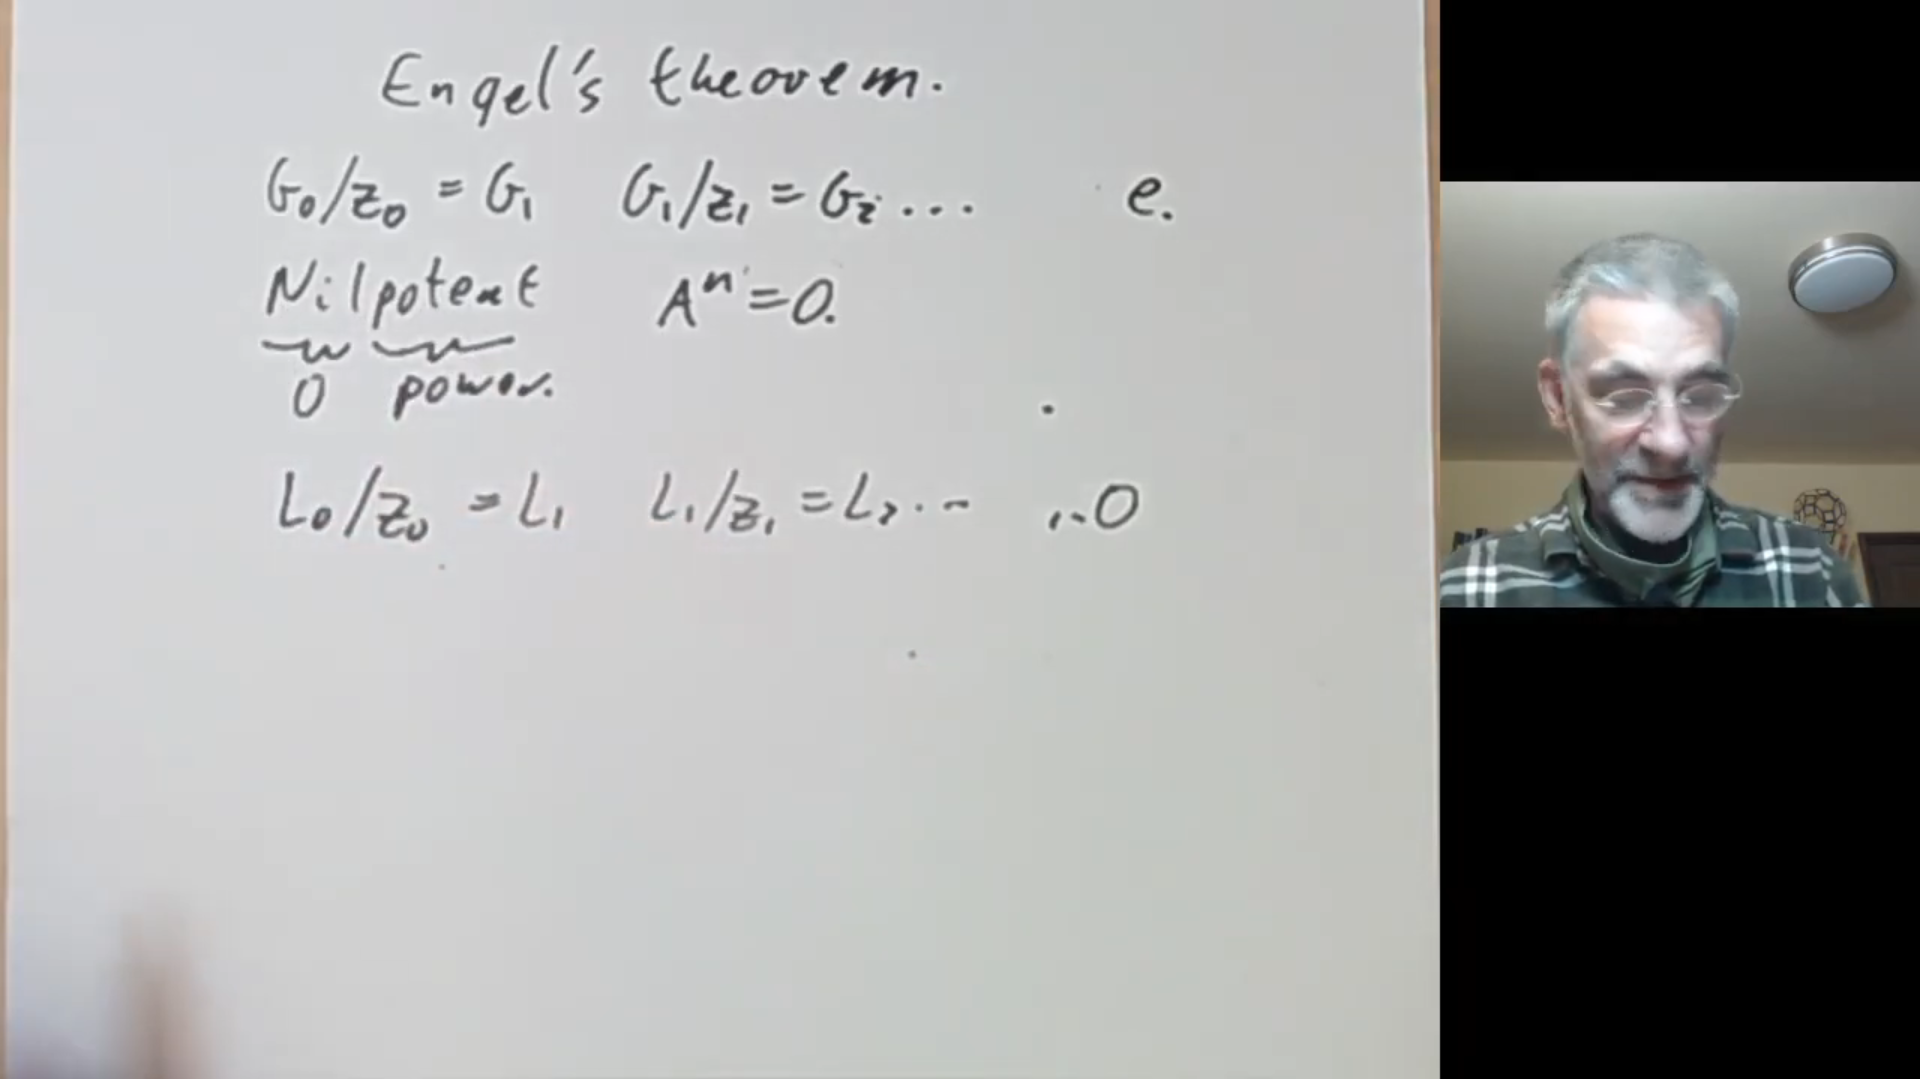 Engel's theorem.
G₀/z₀ = G₁ G₁/z₁ = G₂ ... e.
Nilpotent Aⁿ = 0.
0 power.
L₀/z₀ = L₁ L₁/z₁ = L₂ ... ..0